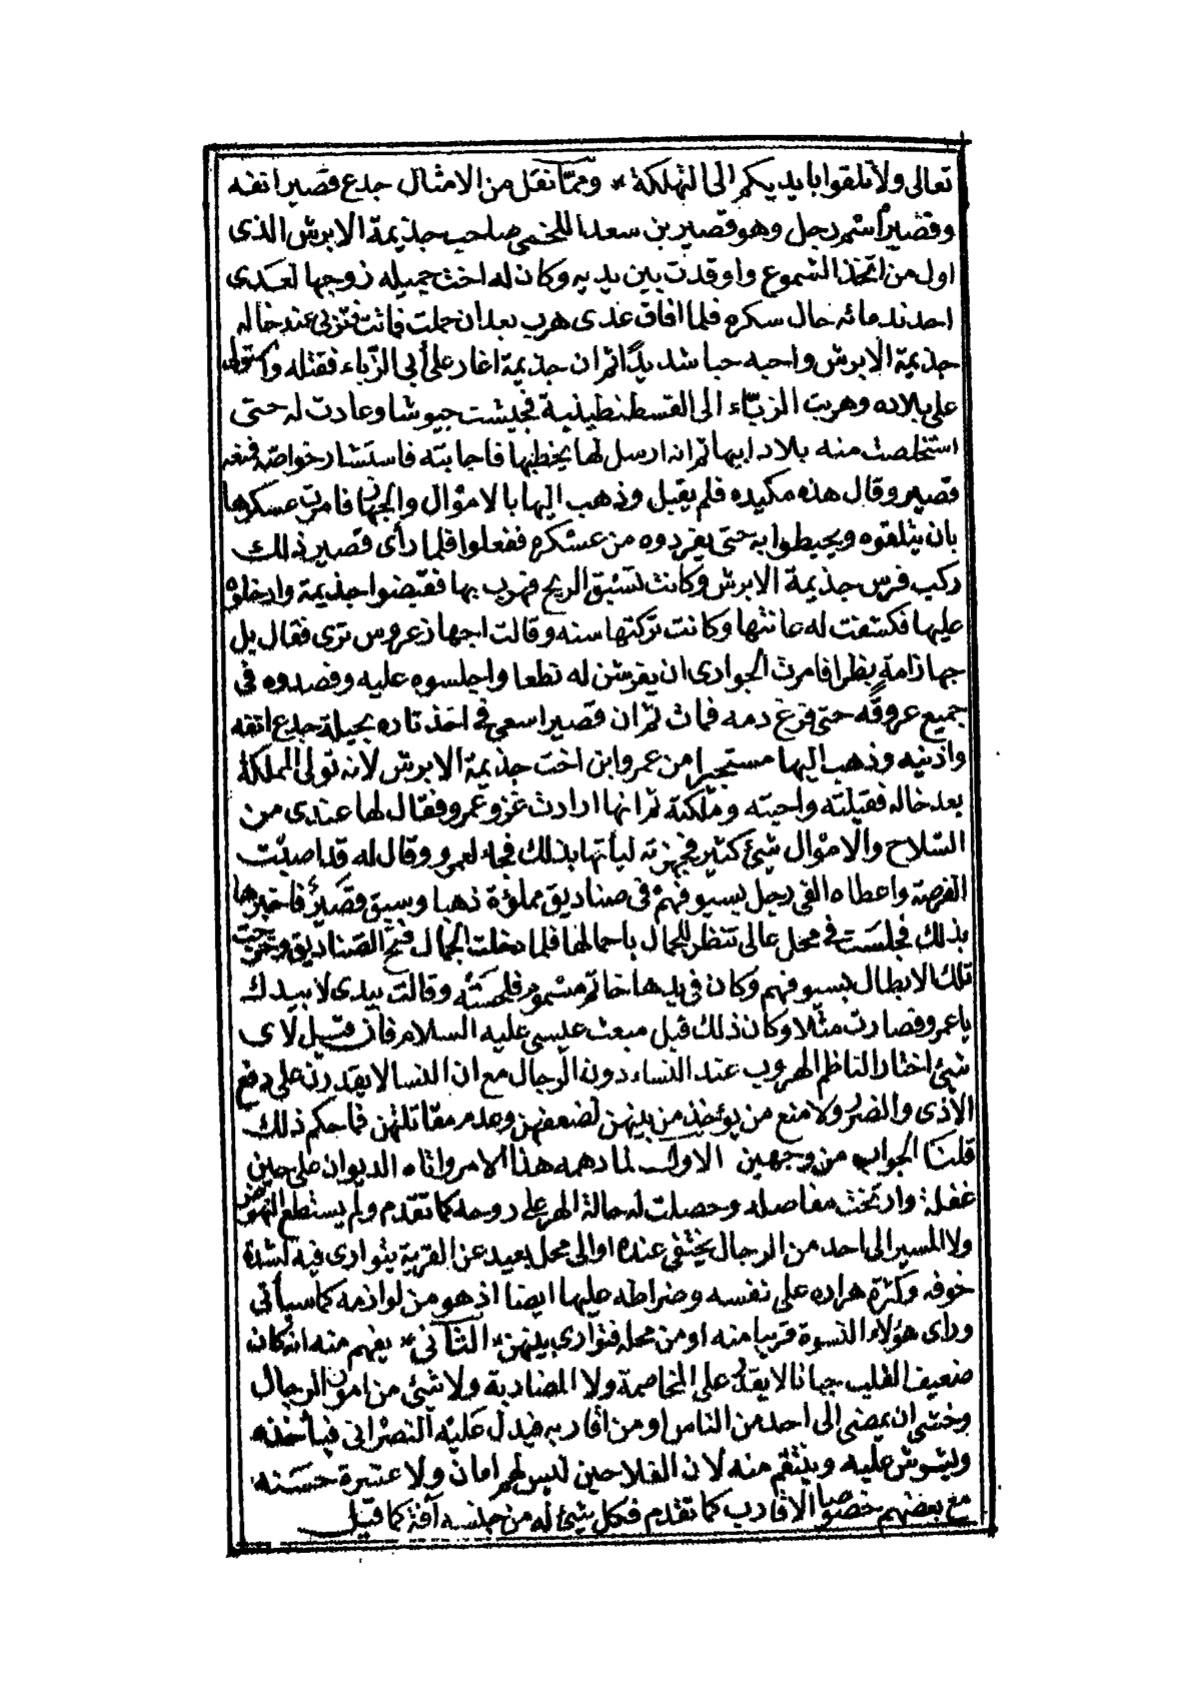 تعالى ولا تلقوا بايديكم الى التهلكة * ومما نقل من الامثال جدع قصير انفه
وقصير اسم رجل وهو قصير بن سعد اللخمي صاحب جذيمة الابرش الذى
اول من اتخذ الشموع واوقدت بين يديه وكان له اخت جميله زوجها لعدى
احد ندمائه حال سكره فلما افاق عدى هرب بعد ان حملت فاتت فتربى عند خاله
جذيمة الابرش واحبه حبا شديدًا ثم ان جذيمة اغار على أبى الزباء فقتله واستولى
على بلاده وهربت الزباء الى القسطنطينية فجيشت جيوشا وعادت له حتى
استخلصت منه بلاد ابيها ثم انه ارسل لها يخطبها فاجابته فاستشار خواصه فمنعه
قصير وقال هذه مكيده فلم يقبل وذهب اليها بالاموال والجهاز فامرت عسكرها
بان يتلقوه ويحيطوا به حتى يفردوه من عسكره ففعلوا فلما رأى قصير ذلك
ركب فرس جذيمة الابرش وكانت تسبق الريح فهرب بها فقبضوا جذيمة وادخلوه
عليها فكشفت له عانتها وكانت تركتها سنه وقالت اجهاز عروس ترى فقال بل
جهاز امة بظرا فامرت الجوارى ان يفرشن له نطعا واجلسوه عليه وفصدوه فى
جميع عروقه حتى فرغ دمه فمات ثم ان قصيرا سعى فى اخذ ثاره بحيلة جدع انفه
واذنيه وذهب اليها مستجيرا من عمرو ابن اخت جذيمة الابرش لانه تولى المملكة
بعد خاله فقبلته واحبته وملكته ثم انها ارادت غزو عمرو فقال لها عندى من
السلاح والاموال شئ كثير فجهزته ليأتيها بذلك فجاء لعمرو وقال له قد اصبت
الفرصة واعطاه الفى رجل بسيوفهم فى صناديق مملؤة ذهبا وسبق قصير فاخبرها
بذلك فجلست فى محل عالى تنظر للجمال باحمالها فلما دخلت الجمال فتح الصناديق وخرجت
تلك الابطال بسيوفهم وكان فى يدها خاتم مسموم فلحسته وقالت بيدى لا بيدك
يا عمرو فصارت مثلا وكان ذلك قبل مبعث عيسى عليه السلام فان قيل لاى
شئ اختار الناظم الهروب عند النساء دون الرجال مع ان النسا لا يقدرن على دفع
الاذى والضرر ولا منع من يؤخذ من بينهن لضعفهن وعدم مقاتلتهن فما حكم ذلك
قلنا الجواب من وجهين الاول لما دهمه هذا الامر واتاه الديوان على حين
غفلة وارتخت مفاصله وحصلت له حالة الهر على روحه كما تقدم ولم يستطع النهوض
ولا المسير الى احد من الرجال يختفى عنده او الى محل بعيد عن القرية يتوارى فيه لشدة
خوفه وكثرة هراره على نفسه وضراطه عليها ايضا اذ هو من لوازمه كما سيأتى
وراى هؤلاء النسوة قريبا منه او من محله فتوارى بينهن * الثانى * يفهم منه انه كان
ضعيف القلب جبانا لا يقدر على المخاصمة ولا المضاربة ولا شئ من امور الرجال
وخشى ان يمضى الى احد من الناس او من اقاربه فيدل عليه النصرانى فيأخذه
ويشوش عليه وينتقم منه لان الفلاحين ليس لهم امان ولا عشرة حسنه
مع بعضهم خصوصا الاقارب كما تقدم فكل شئ له من جنسه آفة كما قيل